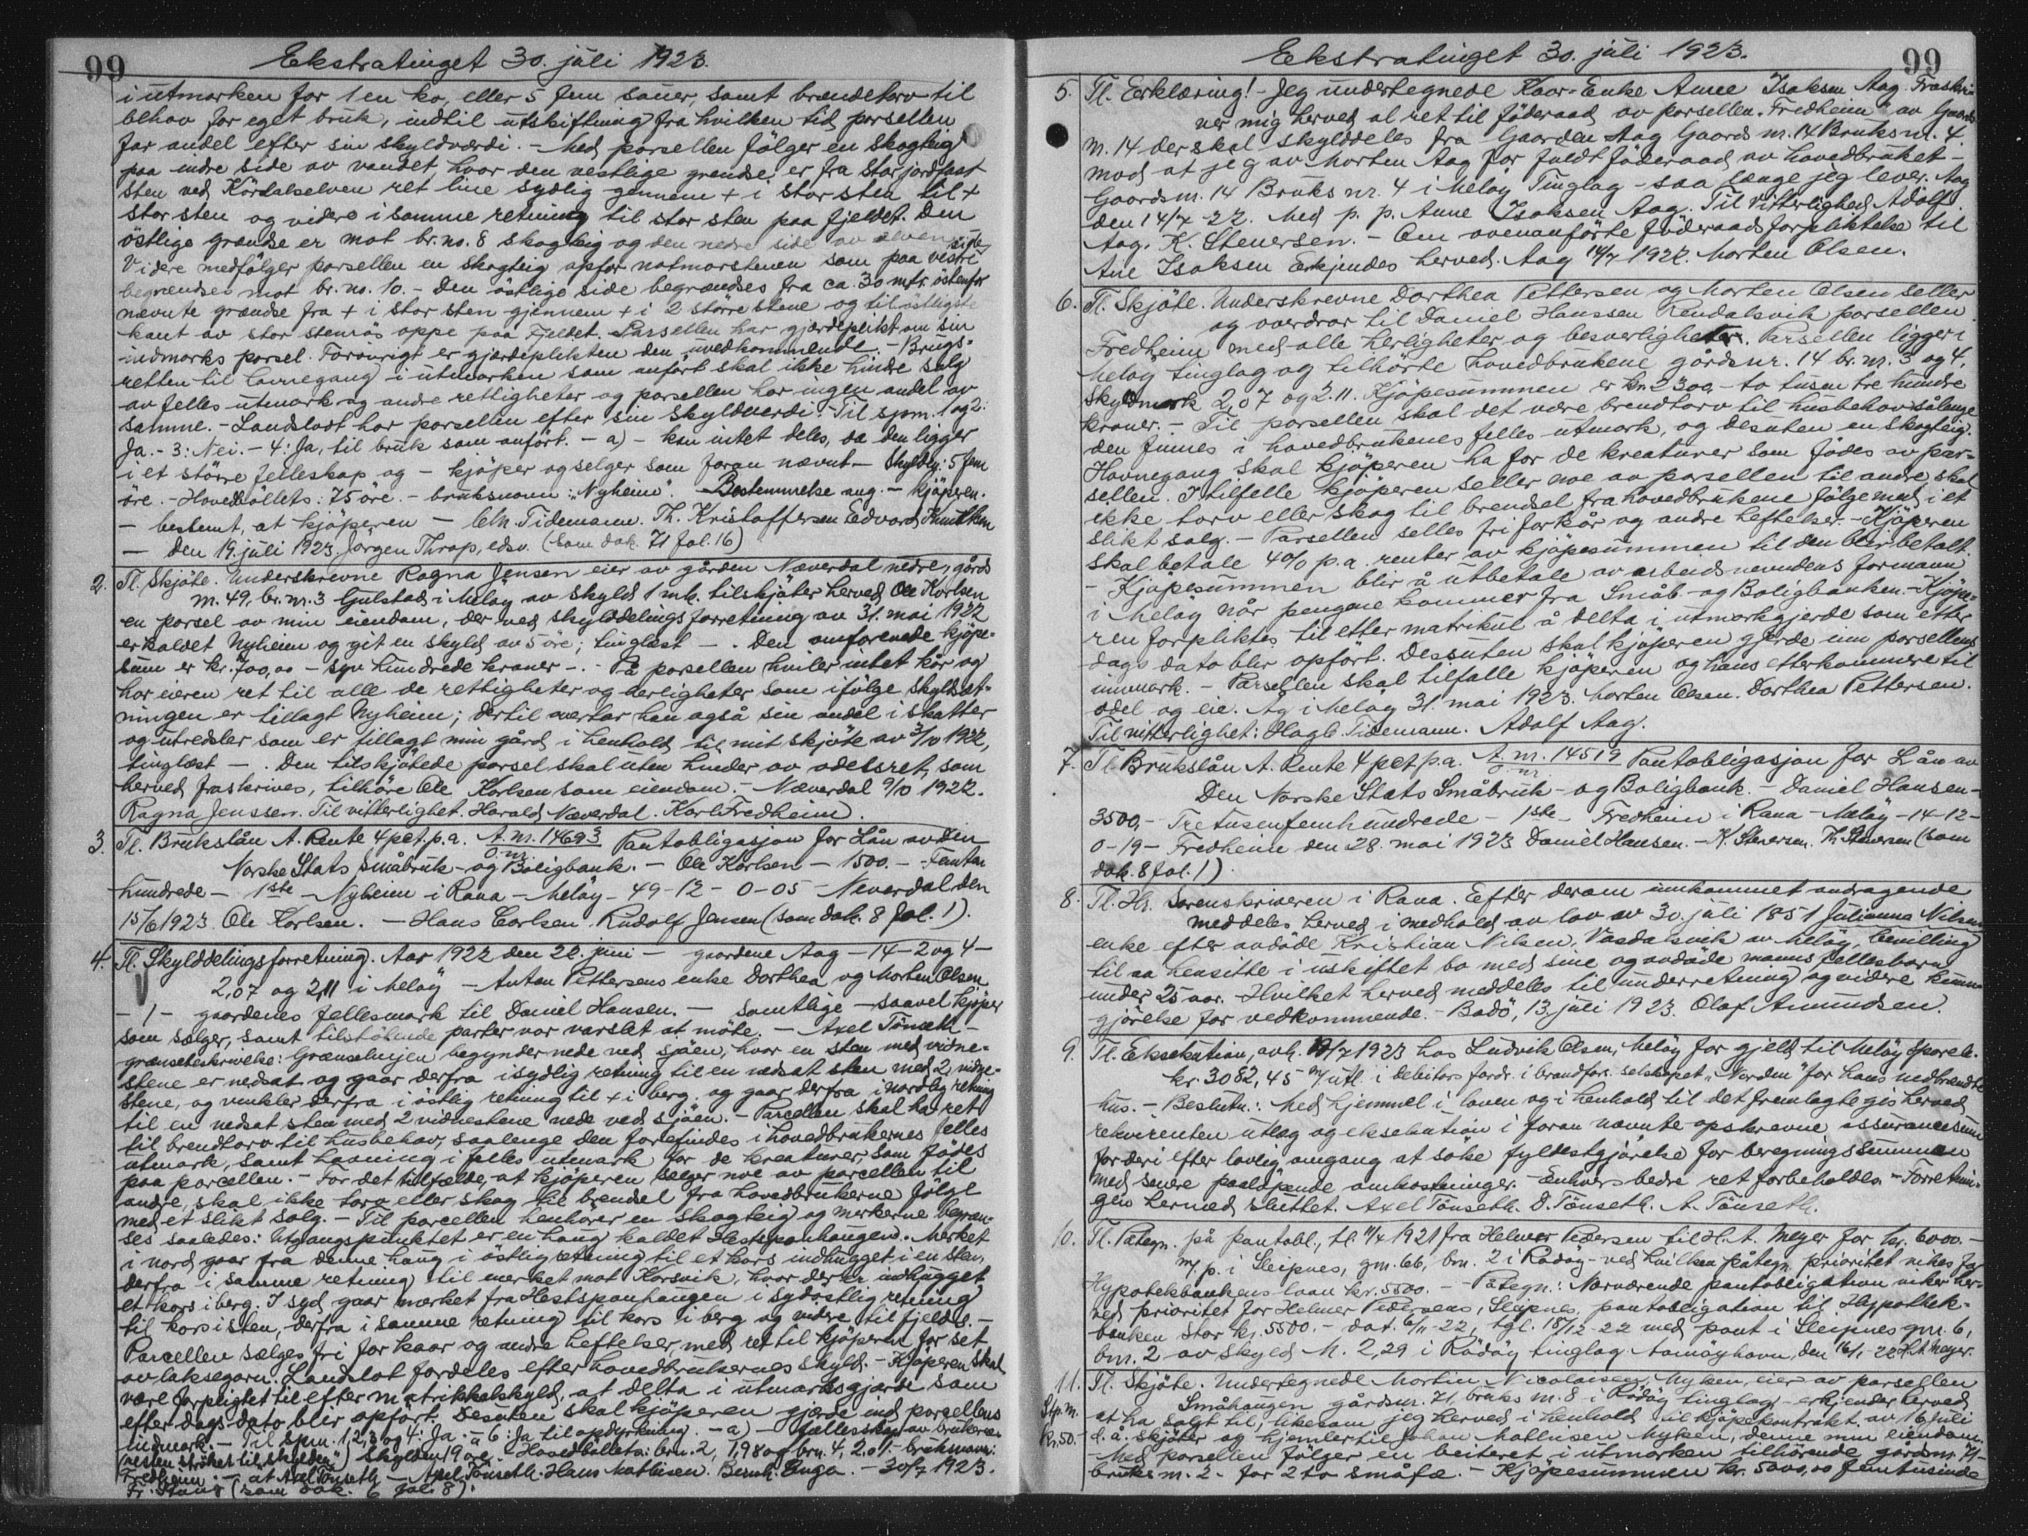 99 Ekstratinget 30. juli 1923.
i utmarken for 1 en ko, eller 5 fem sauer, samt brændetorv til
behov for eget bruk, indtil utskiftning fra hvilken tid parsellen
får andel efter sin skyldværdi. - Med parsellen fölger en skogteig
paa indre side av vandet, hvor den vestlige grændse er fra Stor jordfast
sten ved Kördalselven ret line sydlig gjennem + i stor sten til +
stor sten og videre i samme retning til stor sten paa fjeldet. Den
östlige grændse er mot br. no. 8 skogteig og den nedre side av elven
Videre medfölger parsellen en skogteig opfor notmorstenen som paa vestre side
begrændses mot br. no. 10. - Den östlige side begrændses fra ca. 30 mtr. östenfor
nævnte grændse fra + i stor sten gjennem + i 2 större stene og til östligste
kant av stor stenrös oppe paa Fjeldet. Parsellen har gjærdeplikt om sin
indmarks parsel. Forövrigt er gjærdeplikten den uvedkommende. - Brugs-
retten til havnegang i utmarken som anfört skal ikke hindre salg
av felles utmark og andre rettigheter og parsellen har ingen andel av
samme. - Landslodt har parsellen efter sin skyldverdi. - Til spm. 1 og 2:
Ja. - 3: Nei. - 4: Ja, til bruk som anfört. - a) - kan intet deles, da den ligger
i et större felleskap og - kjöper og selger som foran nævnt - Skyldeg: 5 fem
öre. - Hovedböllets: 75 öre. - bruksnavn: "Nyheim". Bestemmelse ang. - kjöperen.
- bestemt, at kjöperen - Chr. Tidemann. Th. Kristoffersen Edvard Knudsen
- den 19. juli 1923. Jörgen Throp, edsv. (som dok. 71 fol. 16)
2. Tl. Skjöte. Underskrevne Ragna Jensen eier av gården Næverdal nedre, gårds
nr. 49, br. nr. 3 Gulstad i Melöy av skyld 1 mk. tilskjöter herved Ole Karlsen
en parsel av min eiendom, der ved skylddelingsforretning av 31. mai 1922
er kaldet Nyheim og git en skyld av 5 öre; tinglæst - . Den omforenede kjöpe-
sum er kr. 700,00 - syv hundrede kroner - . - På parsellen hviler intet kår og
har eieren ret til alle de rettigheter og herligheter som ifölge skyldset-
ningen er tillagt Nyheim; dertil overtar han også sin andel i skatter
og utredsler som er tillagt min gård i henhold til mit skjöte av 3/10 1922,
tinglæst - . Den tilskjötede parsel skal uten hinder av odelsret, som
herved fraskrives, tilhöre Ole Karlsen som eiendom. - Næverdal 9/10 1922.
Ragna Jenssen. Til vitterlighet. Harald Næverdal. Karl Fredheim.
3. Tl. Brukslån A. Rente 4 pct. p. a. A. nr. 14693 Pantobligasjon for Lån av den
Norske Stats Småbruk- og Boligbank. - Ole Karlsen - 1500. - Femten
hundrede - 1ste - Nyheim i Rana - Melöy - 49-12-0-05 - Neverdal den
15/6 1923. Ole Karlsen. - Hans Carlsen. Rudolf Jensen (som dok. 8 fol. 1).
4. Tl. Skylddelingsforretning. Aar 1922 den 20. juni - gaardene Aag - 14 - 2 og 4 -
2,07 og 2,11 i Melöy - Anton Pettersens enke Dorthea og Morten Olsen
- 1 - gaardenes fellesmark til Daniel Hansen. - samtlige - saavel kjöper
som sælger, samt tilstötende parter var varslet at möte. - Axel Tönseth -
grænsebeskrivelse: Grænselinjen begynder nede ved sjöen, hvor en sten med vidne-
stene er nedsat og gaar derfra i sydlig retning til en nedsat sten med 2 vidne-
stene, og vinkler derfra i östlig retning til + i berg. og gaar derfra i nordlig retning
til en nedsat sten med 2 vidnestene nede ved sjöen. - Parcellen skal ha ret
til brendtorv til husbehov, saalenge den forefindes i hovedbrukernes felles
utmark, samt havning i felles utmark for de kreaturer, som födes
paa parcellen. - For det tilfælde, at kjöperen selger noe av parcellen til
andre, skal ikke torv eller skog til brensel fra hovedbrukerne fölge
med et slikt salg. - Til parcellen henhörer en skogteig og merkerne begræn-
ses saaledes: Utgangspunktet er en haug kaldet Hestspanhaugen. Merket
i nord gaar fra denne haug i östlig retning til et kors indhugget i en sten,
derfra i samme retning til merket mot Horsvik, hvor der er indhugget
et kors i berg. I syd gaar merket fra Hestspanhaugen i sydöstlig retning
til kors i sten, derfra i samme retning til kors i berg og videre til fjelds. -
Parcellen sælges fri for kaar og andre heftelser, med ret til kjöperen for set
av laksegarn. Landslot fordeles efter hovedbrukernes skyld. - Kjöperen skal
være forpligtet til efter matrikkelskyld, at delta i utmarksgjærde som
efter dags dato blir opfört. Desuten skal kjöperen gjærde ind parcellens
indmark. - Til spm. 1, 2, 3 og 4: Ja. - 6: Ja til opdyrkning. - a) - fællesskap av brukerne
(resten ströket til "skylden") Skylden 19 öre. - Hovedböllets: brn. 2, 1,98 og brn. 4, 2.01. - bruksnavn:
Fredheim. - at Axel Tönseth - Axel Tönseth. Hans Mathisen. Bernh. Enga. - 30/7 1923.
Fr. Stang (som dok. 6 fol. 8).
Ekstratinget 30. juli 1923. 99
5. Tl. Erklæring! - Jeg undertegnede Kaar-Enke Anne Isaksen Aag. Fraskri-
ver mig herved al ret til föderaad av porsellen "Fredheim" av Gaards
nr. 14 der skal skylddeles fra Gaarden Aag Gaards nr. 14 Bruks nr. 4.
mod at jeg av Morten Aag faar fuldt föderaad av hovedbruket -
Gaards nr. 14 Bruks nr. 4 i Melöy Tinglag - saa længe jeg lever. Aag
den 14/7 - 22. Med p. p. Anne Isaksen Aag. Til Vitterlighed Adolf
Aag. K. Stenersen. - Om ovenanförte föderaadsforpliktelse til
Ane Isaksen Erkjendes herved. Aag 14/7 1922. Morten Olsen.
6. Tl. Skjöte. Underskrevne Dorthea Pettersen og Morten Olsen seller
og overdrar til Daniel Hanssen Rendalsvik parsellen
Fredheim med alle herligheter og besverligheter. Parsellen ligger i
Melöy tinglag og tilhörte hovedbrukene gårdsnr. 14 br. nr. 3 og 4,
skyldmark 2,07 og 2.11. Kjöpesummen er kr. 2300 - to tusen tre hundre
kroner. - Til parsellen skal det være brendtorv til husbehov sålenge
den finnes i hovedbrukenes felles utmark, og desuten en skogteig.
Havnegang skal kjöperen ha for de kreaturer som födes av par-
sellen. I tilfelle kjöperen seller noe av parsellen til andre, skal
ikke torv eller skog til brendsel fra hovedbrukene fölge med i et
slikt salg. - Parsellen selles fri for kår og andre heftelser. - Kjöperen
skal betale 4 % p. a. renter av kjöpesummen til den blir betalt.
- Kjöpesummen blir å utbetale av arbeidsnevndens formann
i Melöy når pengene kommer fra Småb- og Boligbanken. - Kjöpe-
ren forpliktes til etter matrikul å delta i utmarkgjerde som etter
dags dato blir opfört. Dessuten skal kjöperen gjerde inn porsellens
innmark. - Parsellen skal tilfalle kjöperen og hans etterkommere til
odel og eie. Ag i Melöy 31. mai 1923. Morten Olsen. Dorthea Pettersen.
Til vitterlighet: Hagb. Tidemann. Adolf Aag.
7. Tl. Brukslån A. Rente 4 pct. p. a. A. nr. 14519 Pantobligasjon for Lån av
Den Norske Stats Småbruk- og Boligbank. - Daniel Hansen -
3500, - Tretusenfemhundrede - 1ste - Fredheim i Rana - Melöy - 14-12-
0-19 - Fredheim den 28 mai 1923 Daniel Hansen. - K. Stenersen. Th. Stenersen (som
dok. 8 fol. 1).
8. Tl. Hr. Sorenskriveren i Rana. Efter derom innkommet andragende
meddeles herved i medhold av lov av 30. juli 1851 Julianna Nilsen
enke efter avdöde Kristian Nilsen, Vasdalsvik av Melöy, bevilling
til aa hensitte i uskiftet bo med sine og avdöde manns fellesbarn
under 25 aar. - Hvilket herved meddeles til underretning og videre kunn-
gjörelse for vedkommende. - Bodö, 13. juli 1923. Olaf Amundsen.
9. Tl. Eksekution, avh. 12/7 1923 hos Ludvik Olsen, Melöy for gjeld til Melöy Spareb.
kr. 3082,45 m/ utl. i debitors fordr. i brandfors. selskapet "Norden" for hans nedbrændte
hus. - Beslutn.: Med hjemmel i loven og i henhold til det fremlagte gis herved
rekvirenten utlæg og eksekution i foran nævnte opskrevne assurancesum
for deri efter lovlig omgang at söke fyldestgjörelse for beregningssummen
med senere paalöpende omkostninger. - Enhvers bedre ret forbeholdes. - Forretnin-
gen hermed sluttet. Axel Tönseth. D. Tönseth. A. Tönseth.
10. Tl. Påtegn. på pantobl., tl. 11/4 1921 fra Helmer Pedersen til H. A. Meyer for kr. 6000. -
m/ p. i Sleipnes, gnr. 66, bnr. 2 i Rödöy - ved hvilken påtegn. prioritet vikes for
Hypotekbankens laan kr. 5500. - - Påtegn.: Nærværende pantobligation viker her-
ved prioritet for Helmer Pedersens, Sleipnes, pantobligation til Hypothek-
banken stor kr. 5500. - dat. 6/11-22, tgl. 18/12-22 med pant i Sleipnes gnr. 6,
bnr. 2 av skyld M. 2,29 i Rödöy tinglag. Tomöyhavn, den 16/1 - 22 H. A. Meyer.
11. Tl. Skjöte. Undertegnede Martin Nicolaisen, Myken, eier av parsellen
Stp. m.
Kr. 50.-
Småhaugen gårdsnr. 71, bruks nr. 8 i Rödöy tinglag, erkjender herved
at ha solgt til, likesom jeg herved i henhold til kjöpekontrakt av 16 juli
d. a. skjöter og hjemler til Johan Mathisen Myken, denne min eiendom.
- Med parsellen fölger en beiteret i utmarken tilhörende gårdsnr. 71 -
bruks nr. 2 - for 2 to småfæ. - Kjöpesummen kr. 5000,00 femtusinde